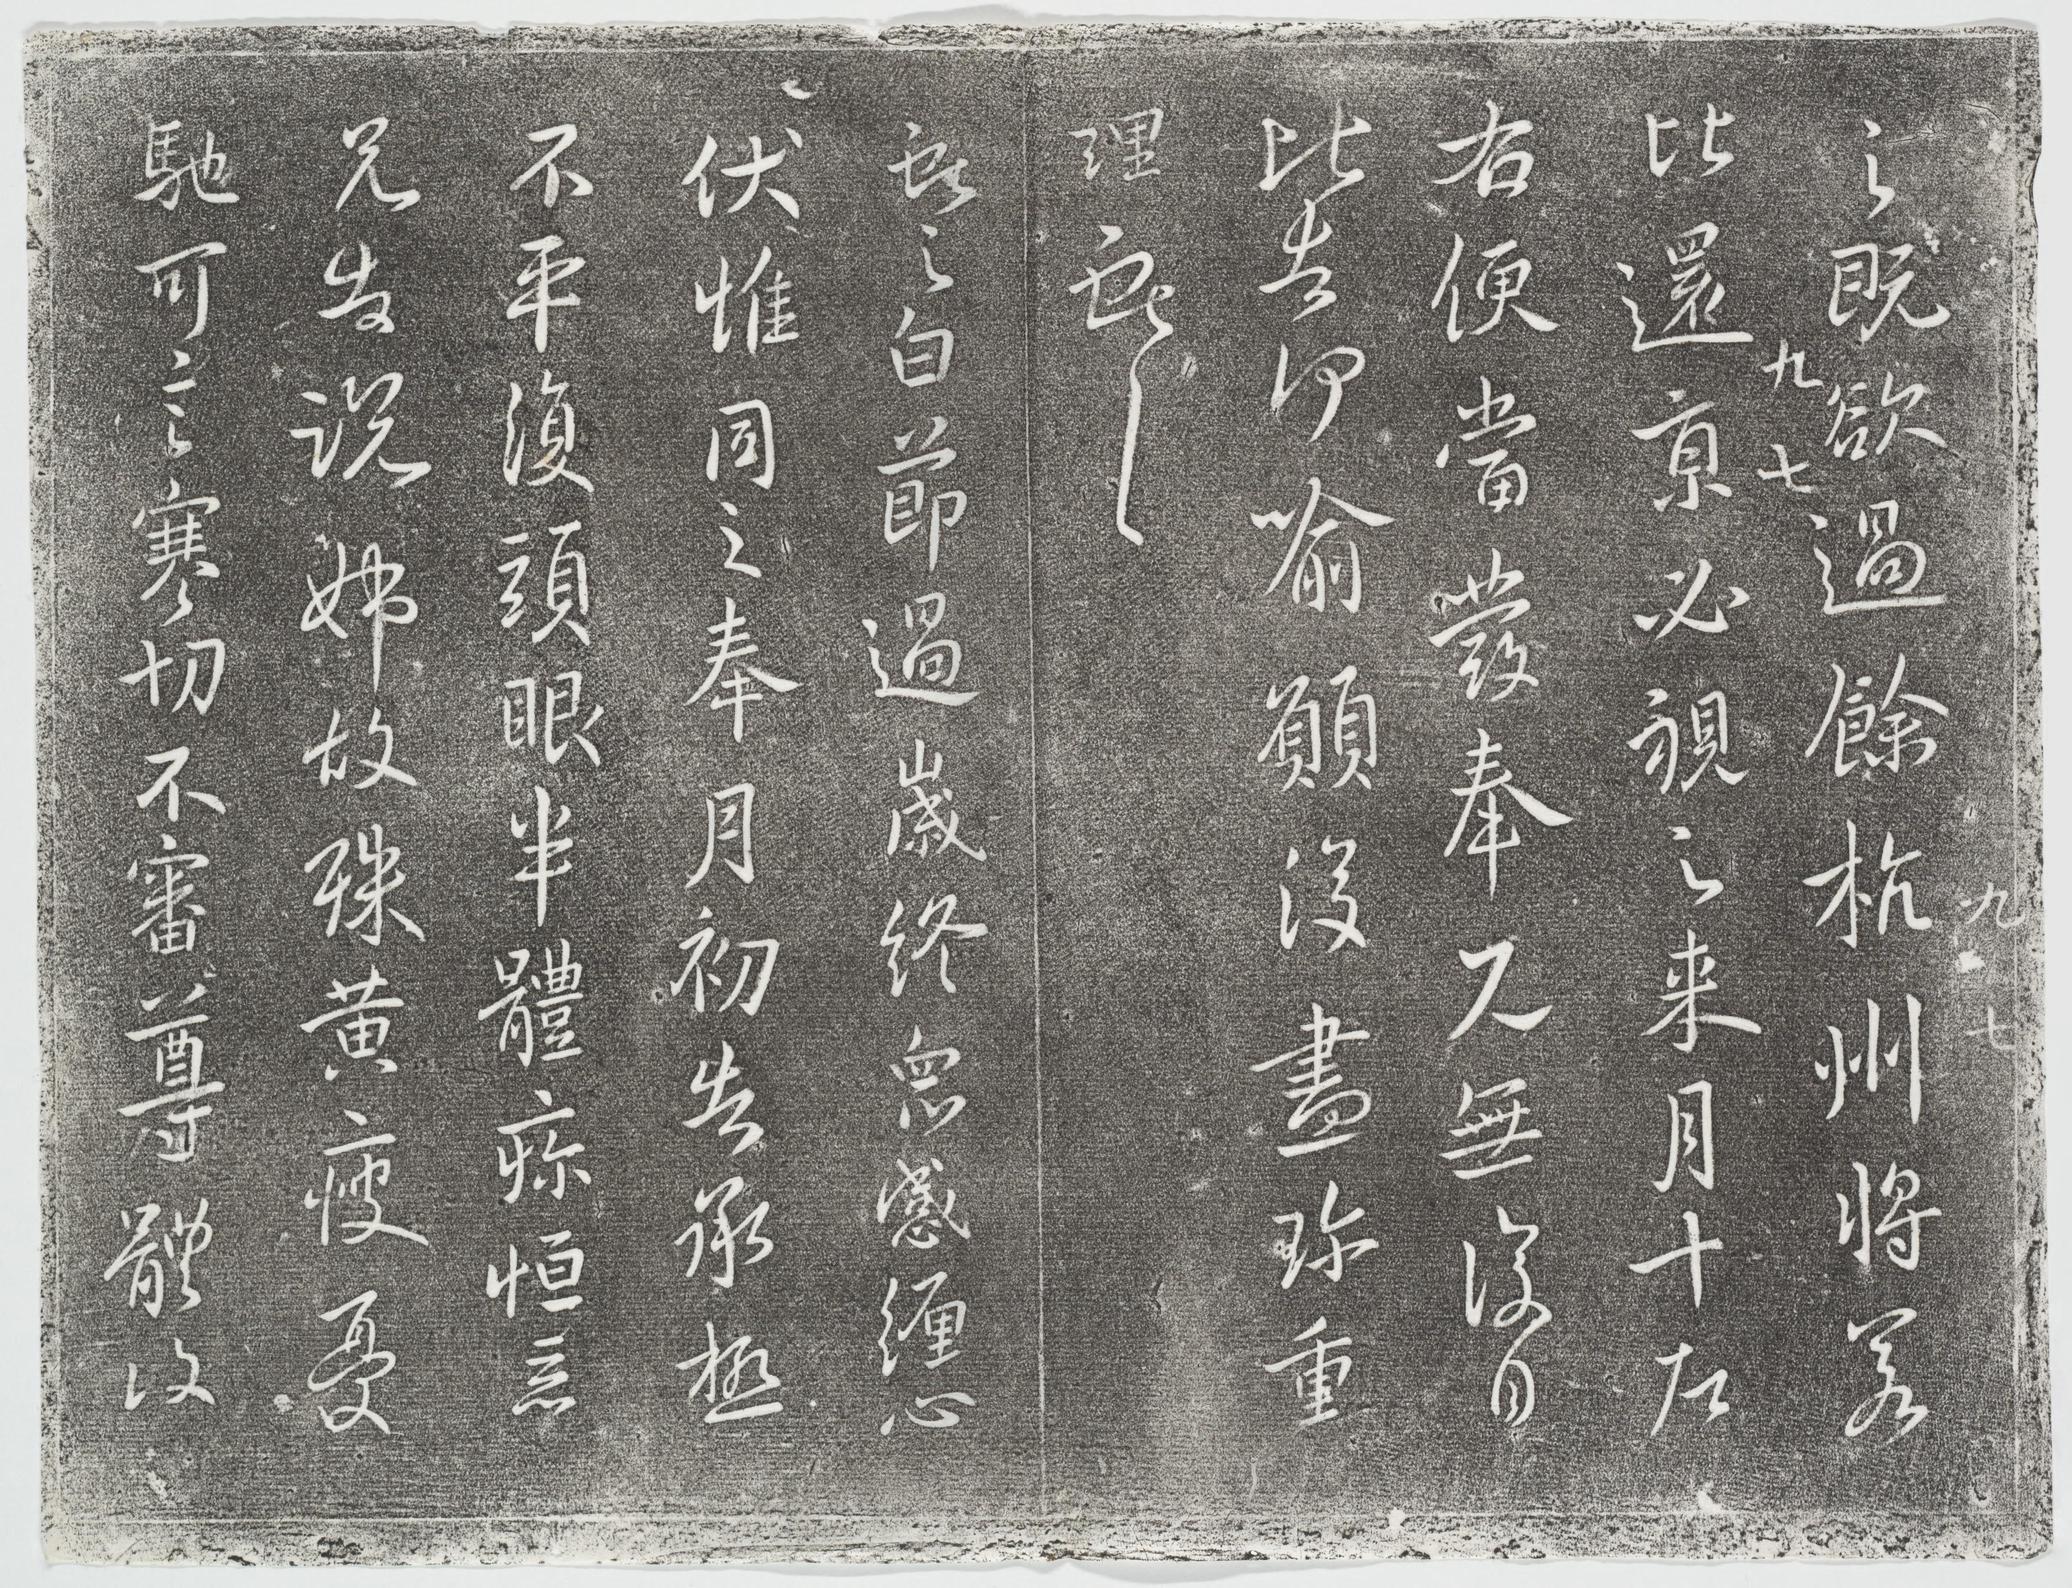 九 七
之既欲過餘杭州將若
九 七
比還京必視之来月十左
右便當發奉見無復日
比告何喻願復盡珍重
理獻之
獻之白節過歲終眾感纏心
伏惟同之奉月初告承極
不平復頭眼半體疼恒惡
兄告說姊故殊黃瘦憂
馳可言寒切不審尊體復